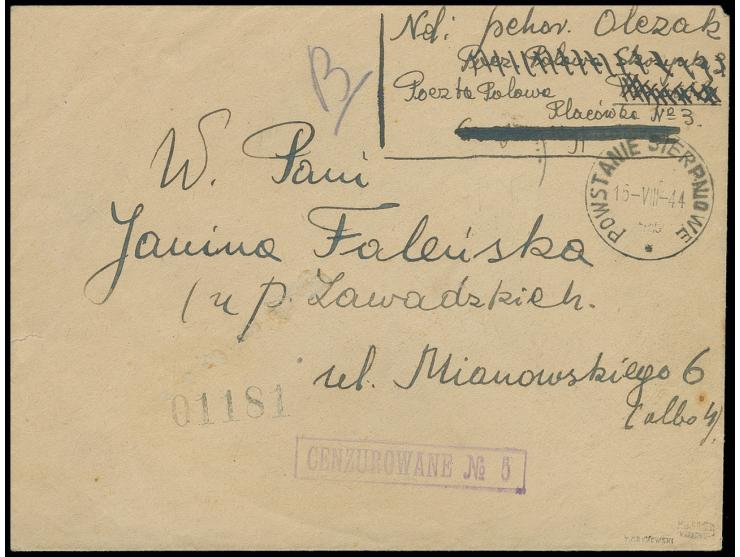 Nd: pchor. Olczak
Poczta Polowa
Placówka № 3.
B
POWSTANIE SIERPNIOWE
15-VIII-44
W. Pani
Janina Faleńska
(u p. Zawadzkich.
ul. Mianowskiego 6
(albo 4)
01181
CENZUROWANE № 5